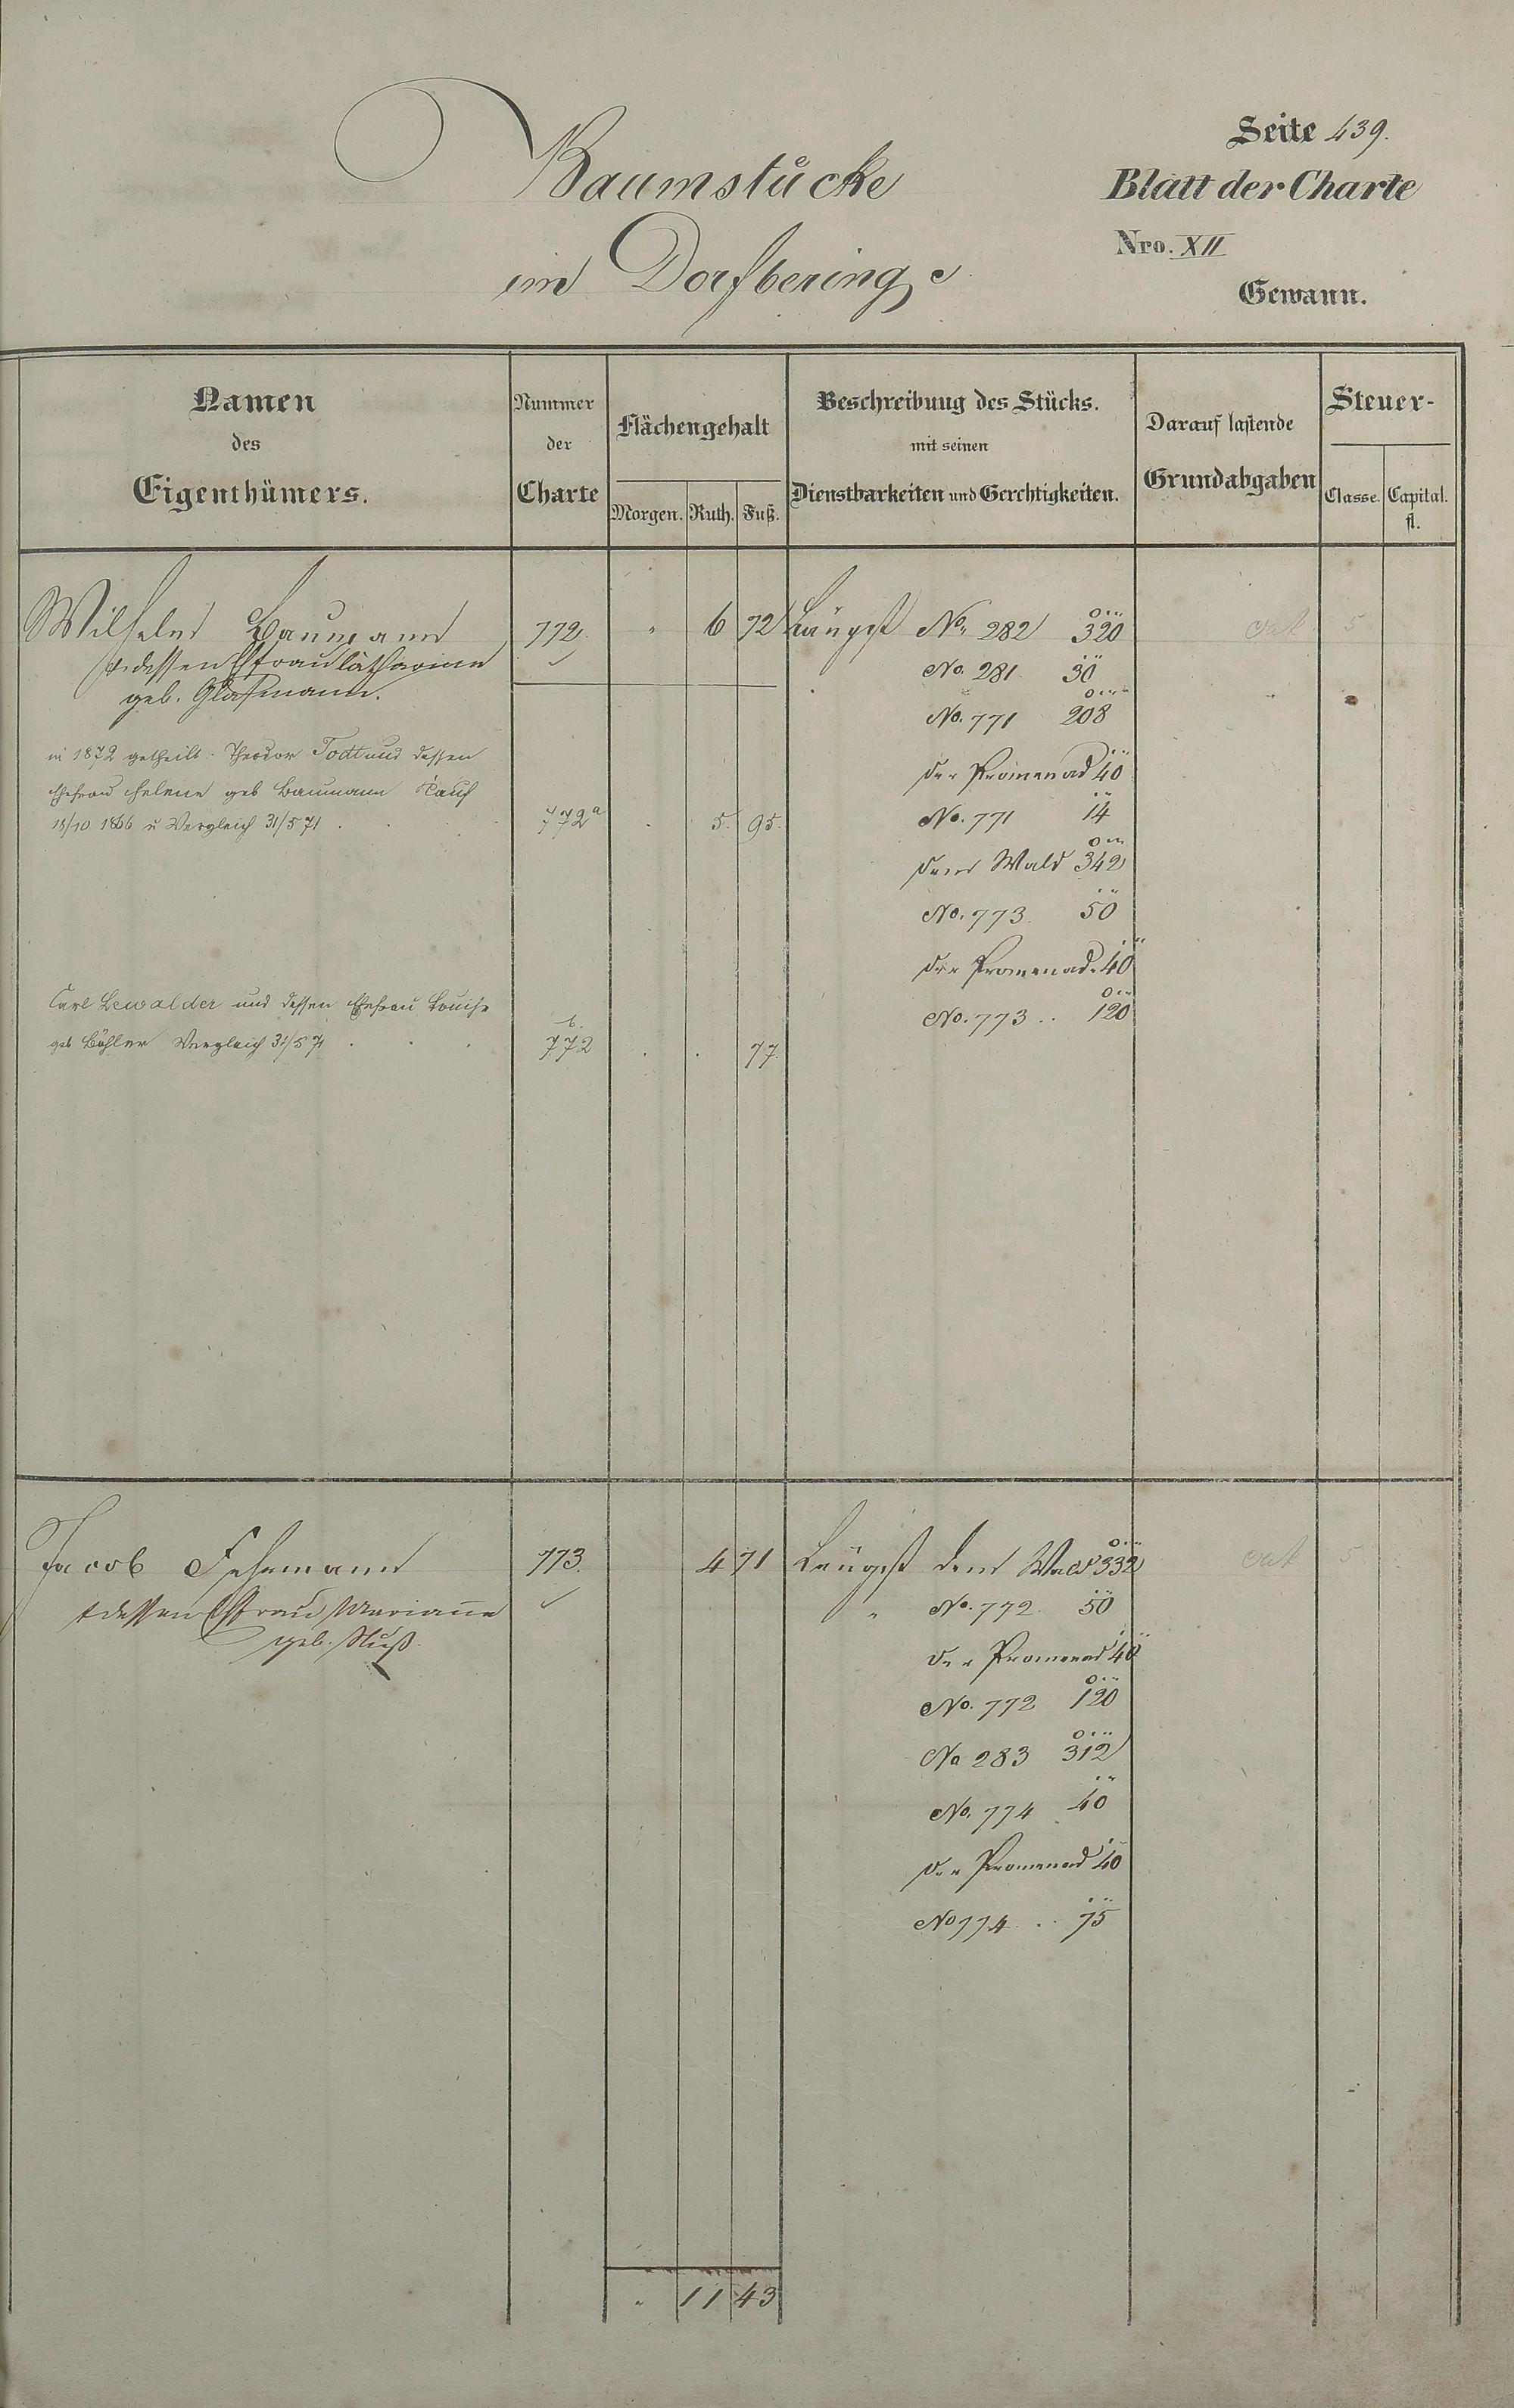 Seite 439.
Baumstücke
Blatt der Charte
im Dorfberinge
Nro. XII
Gewann.
Namen des Eigenthümers.
Nummer der Charte
Flächengehalt
Morgen. Ruth. Fuß.
Beschreibung des Stücks.
mit seinen
Dienstbarkeiten und Gerechtigkeiten.
Darauf lastende
Grundabgaben
Steuer-
Classe. Capital. fl.
Wilhelm Baumann 772 " 6 72 Längst No. 282 320 5
& dessen Ehefrau Catharina
No. 281 30
geb. Glasmann.
No. 771 208
in 1872 getheilt: Theodor Todt und dessen
der Promenad 40
Ehefrau Helene geb Baumann Kauf
18/10 1866 u Vergleich 31/5 71 . 772a . 5. 95. No. 771 14
dem Wald 342
No. 773 50
der Promenad. 40
Carl Lewalder und dessen Ehefrau Louise
No. 773 .. 120
geb Böhler Vergleich 31/5 71 . . . 772b. . . 77.
Jacob Fehrmann 773. 4 71 Längst dem Wald 332 5
& dessen Ehefrau Marianne
" No. 772. 50
geb.
der Promenad 40
No. 772 120
No 283 312
No. 774 40
der Promenad 40
No 774 .. 75
" 11 43